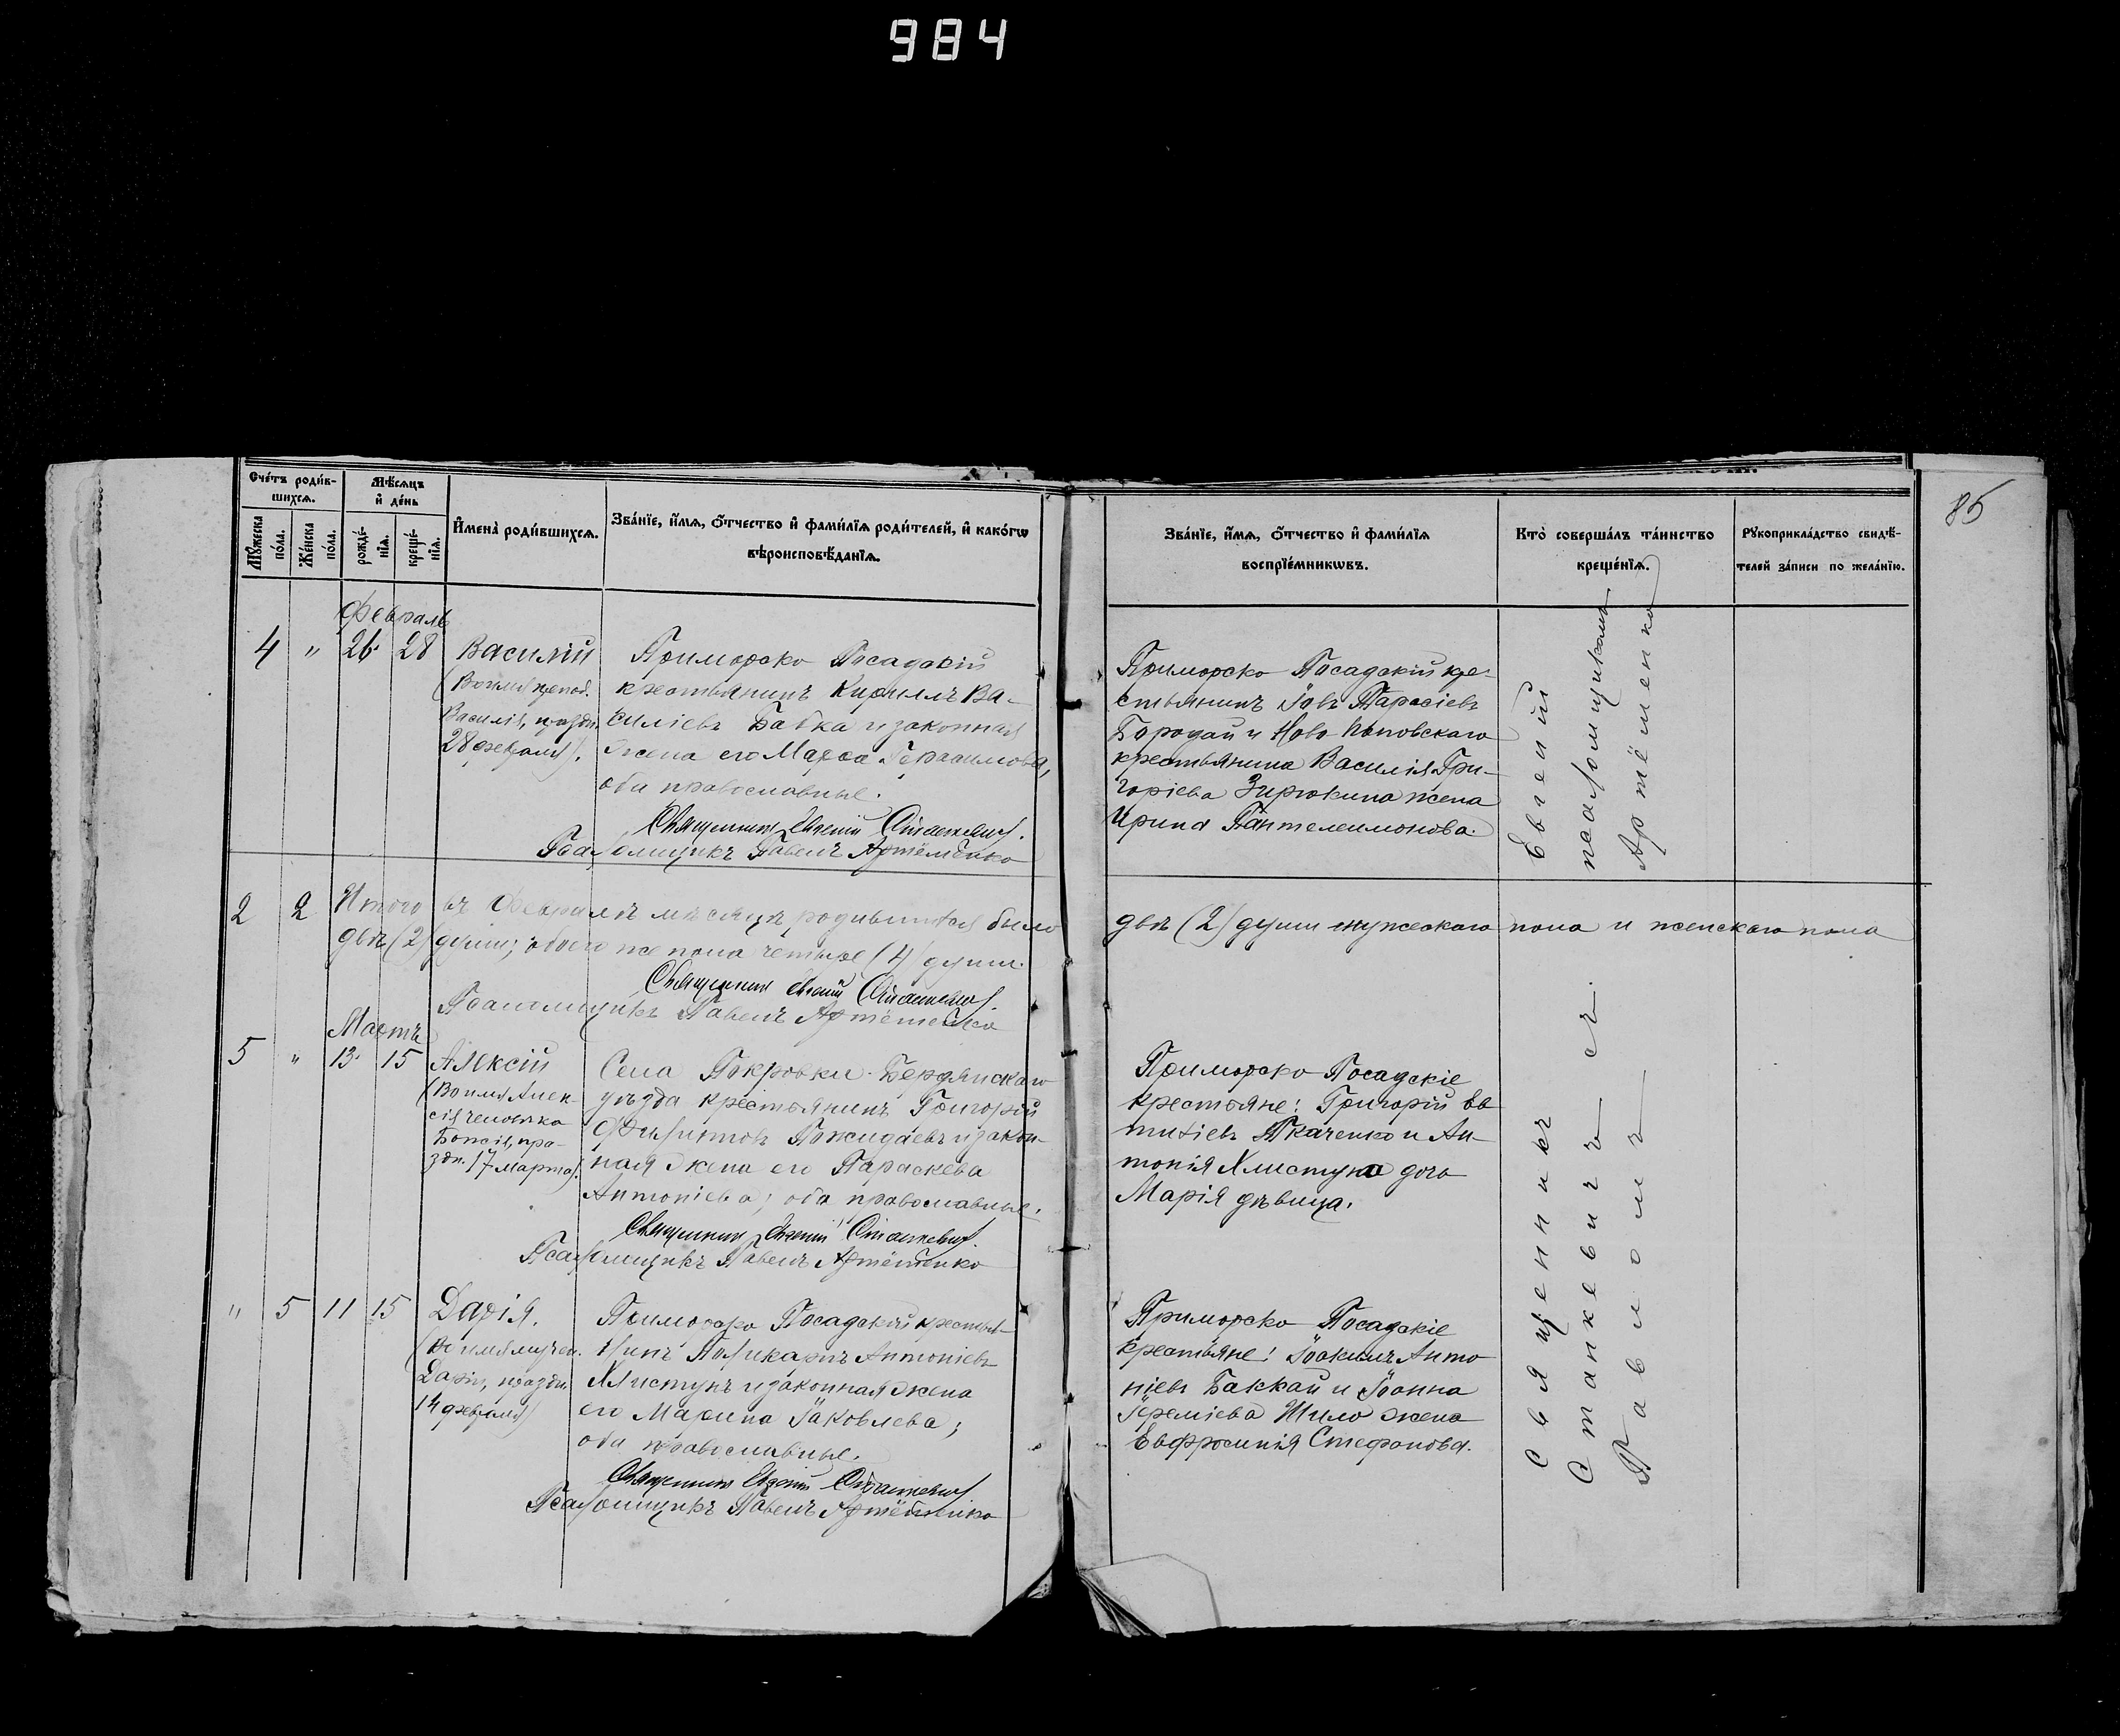 984
85
Сче́тъ роди́в-
шихсѧ.
Мѣ́сѧцъ
и҆ де́нь
Мꙋ́жеска
по́ла.
Же́нска
по́ла.
рожде́-
нїѧ.
креще́-
нїѧ.
И҆мена̀ роди́вшихсѧ.
Зва́нїе, и҆́мѧ, ѻ҆́тчество и҆ фами́лїѧ роди́телей, и҆ како́гѡ
вѣроисповѣ́данїѧ.
Зва́нїе, и҆́мѧ, ѻ҆́тчество и҆ фами́лїѧ
воспрїе́мникѡвъ.
Кто̀ соверша́лъ та́инство
креще́нїѧ.
Рꙋкоприкла́дство свидѣ́-
телей за́писи по жела́нїю.
Февраль
4 " 26. 28
Василій
(Во имя препод.
Василія, праздн.
28 февраля).
Приморско Посадскій
крестьянинъ Кириллъ Ва-
силіевъ Бабка и законная
жена его Марѳа Герасимова,
оба православные.
Священникъ Евгеній Станкевичъ.
Псаломщикъ Павелъ Артёменко
Приморско Посадскій кре-
стьянинъ Іовъ Тарасіевъ
Бородай и Ново Поповскаго
крестьянина Василія Гри-
горіева Зирюкина жена
Ирина Пантелеимонова.
2 2 Итого въ Февралѣ мѣсяцѣ родившихся было
двѣ (2) души мужескаго пола и женскаго пола
двѣ (2) души; обоего же пола четыре (4) души.
Священникъ Евгеній Станкевичъ.
Псаломщикъ Павелъ Артёменко
Мартъ
5 " 13. 15
Алексій
(Во имя Алек-
сія человѣка
Божія, пра-
здн. 17 марта).
Села Покровки Бердянскаго
уѣзда крестьянинъ Григорій
Филиповъ Пожидаевъ и закон-
ная жена его Параскева
Антоніева; оба православные.
Священникъ Евгеній Станкевичъ.
Псаломщикъ Павелъ Артёменко
Приморско Посадскіе
крестьяне: Григорій Ев
тихіевъ Ткаченко и Ан-
тонія Хлистуна дочь
Марія дѣвица.
" 5 11 15
Дарія.
(Во имя мучен.
Даріи, праздн.
14 февраля)
Приморско Посадскій крестья-
нинъ Поликарпъ Антоніевъ
Хлистунъ и законная жена
его Марина Іаковлева;
оба православные.
Священникъ Евгеній Станкевичъ
Псаломщикъ Павелъ Артёменко
Приморско Посадскіе
крестьяне: Іоакимъ Анто
ніевъ Баккай и Іоанна
Іереміева Шило жена
Евфросинія Стефанова.
Священникъ Евгеній
Станкевичъ съ псаломщикомъ
Павломъ Артёменко